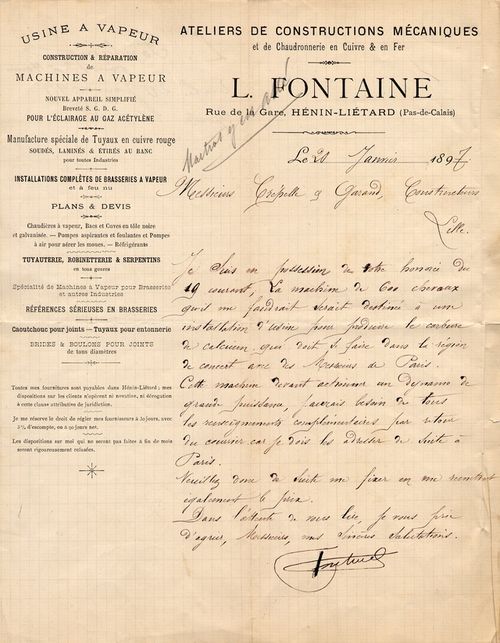 USINE A VAPEUR
CONSTRUCTION & RÉPARATION
de
MACHINES A VAPEUR
NOUVEL APPAREIL SIMPLIFIÉ
Breveté S. G. D. G.
POUR L'ÉCLAIRAGE AU GAZ ACÉTYLÈNE
Manufacture spéciale de Tuyaux en cuivre rouge
SOUDÉS, LAMINÉS & ÉTIRÉS AU BANC
pour toutes Industries
INSTALLATIONS COMPLÈTES DE BRASSERIES A VAPEUR
et à feu nu
PLANS & DEVIS
Chaudières à vapeur, Bacs et Cuves en tôle noire
et galvanisée. — Pompes aspirantes et foulantes et Pompes
à air pour aérer les moues. — Réfrigérants
TUYAUTERIE, ROBINETTERIE & SERPENTINS
en tous genres
Spécialité de Machines à Vapeur pour Brasseries
et autres Industries
RÉFÉRENCES SÉRIEUSES EN BRASSERIES
Caoutchouc pour joints — Tuyaux pour entonnerie
BRIDES & BOULONS POUR JOINTS
de tous diamètres
Toutes mes fournitures sont payables dans Hénin-Liétard ; mes
dispositions sur les clients n'opérant ni novation, ni dérogation
à cette clause attributive de juridiction.
Je me réserve le droit de régler mes fournisseurs à 30 jours, avec
3 % d'escompte, ou à 90 jours net.
Les dispositions sur moi qui ne seront pas faites à fin de mois
seront rigoureusement refusées.
ATELIERS DE CONSTRUCTIONS MÉCANIQUES
et de Chaudronnerie en Cuivre & en Fer
L. FONTAINE
Rue de la Gare, HÉNIN-LIÉTARD (Pas-de-Calais)
Le 21 Janvier 1897
Messieurs Crépelle & Garand, Constructeurs
Lille.
Je suis en possession de votre honorée du
19 courant, La machine de 600 chevaux
qu'il me faudrait serait destinée à une
installation d'usine pour produire le carbure
de calcium, qui doit se faire dans la région
de concert avec des Messieurs de Paris.
Cette machine devant actionner un dynamo de
grande puissance, j'aurais besoin de tous
les renseignements complémentaires par retour
du courrier car je dois les adresser de suite à
Paris.
Veuillez donc de suite me fixer en me remettant
également le prix.
Dans l'attente de vous lire, je vous prie
d'agréer, Messieurs, mes Sincères Salutations.